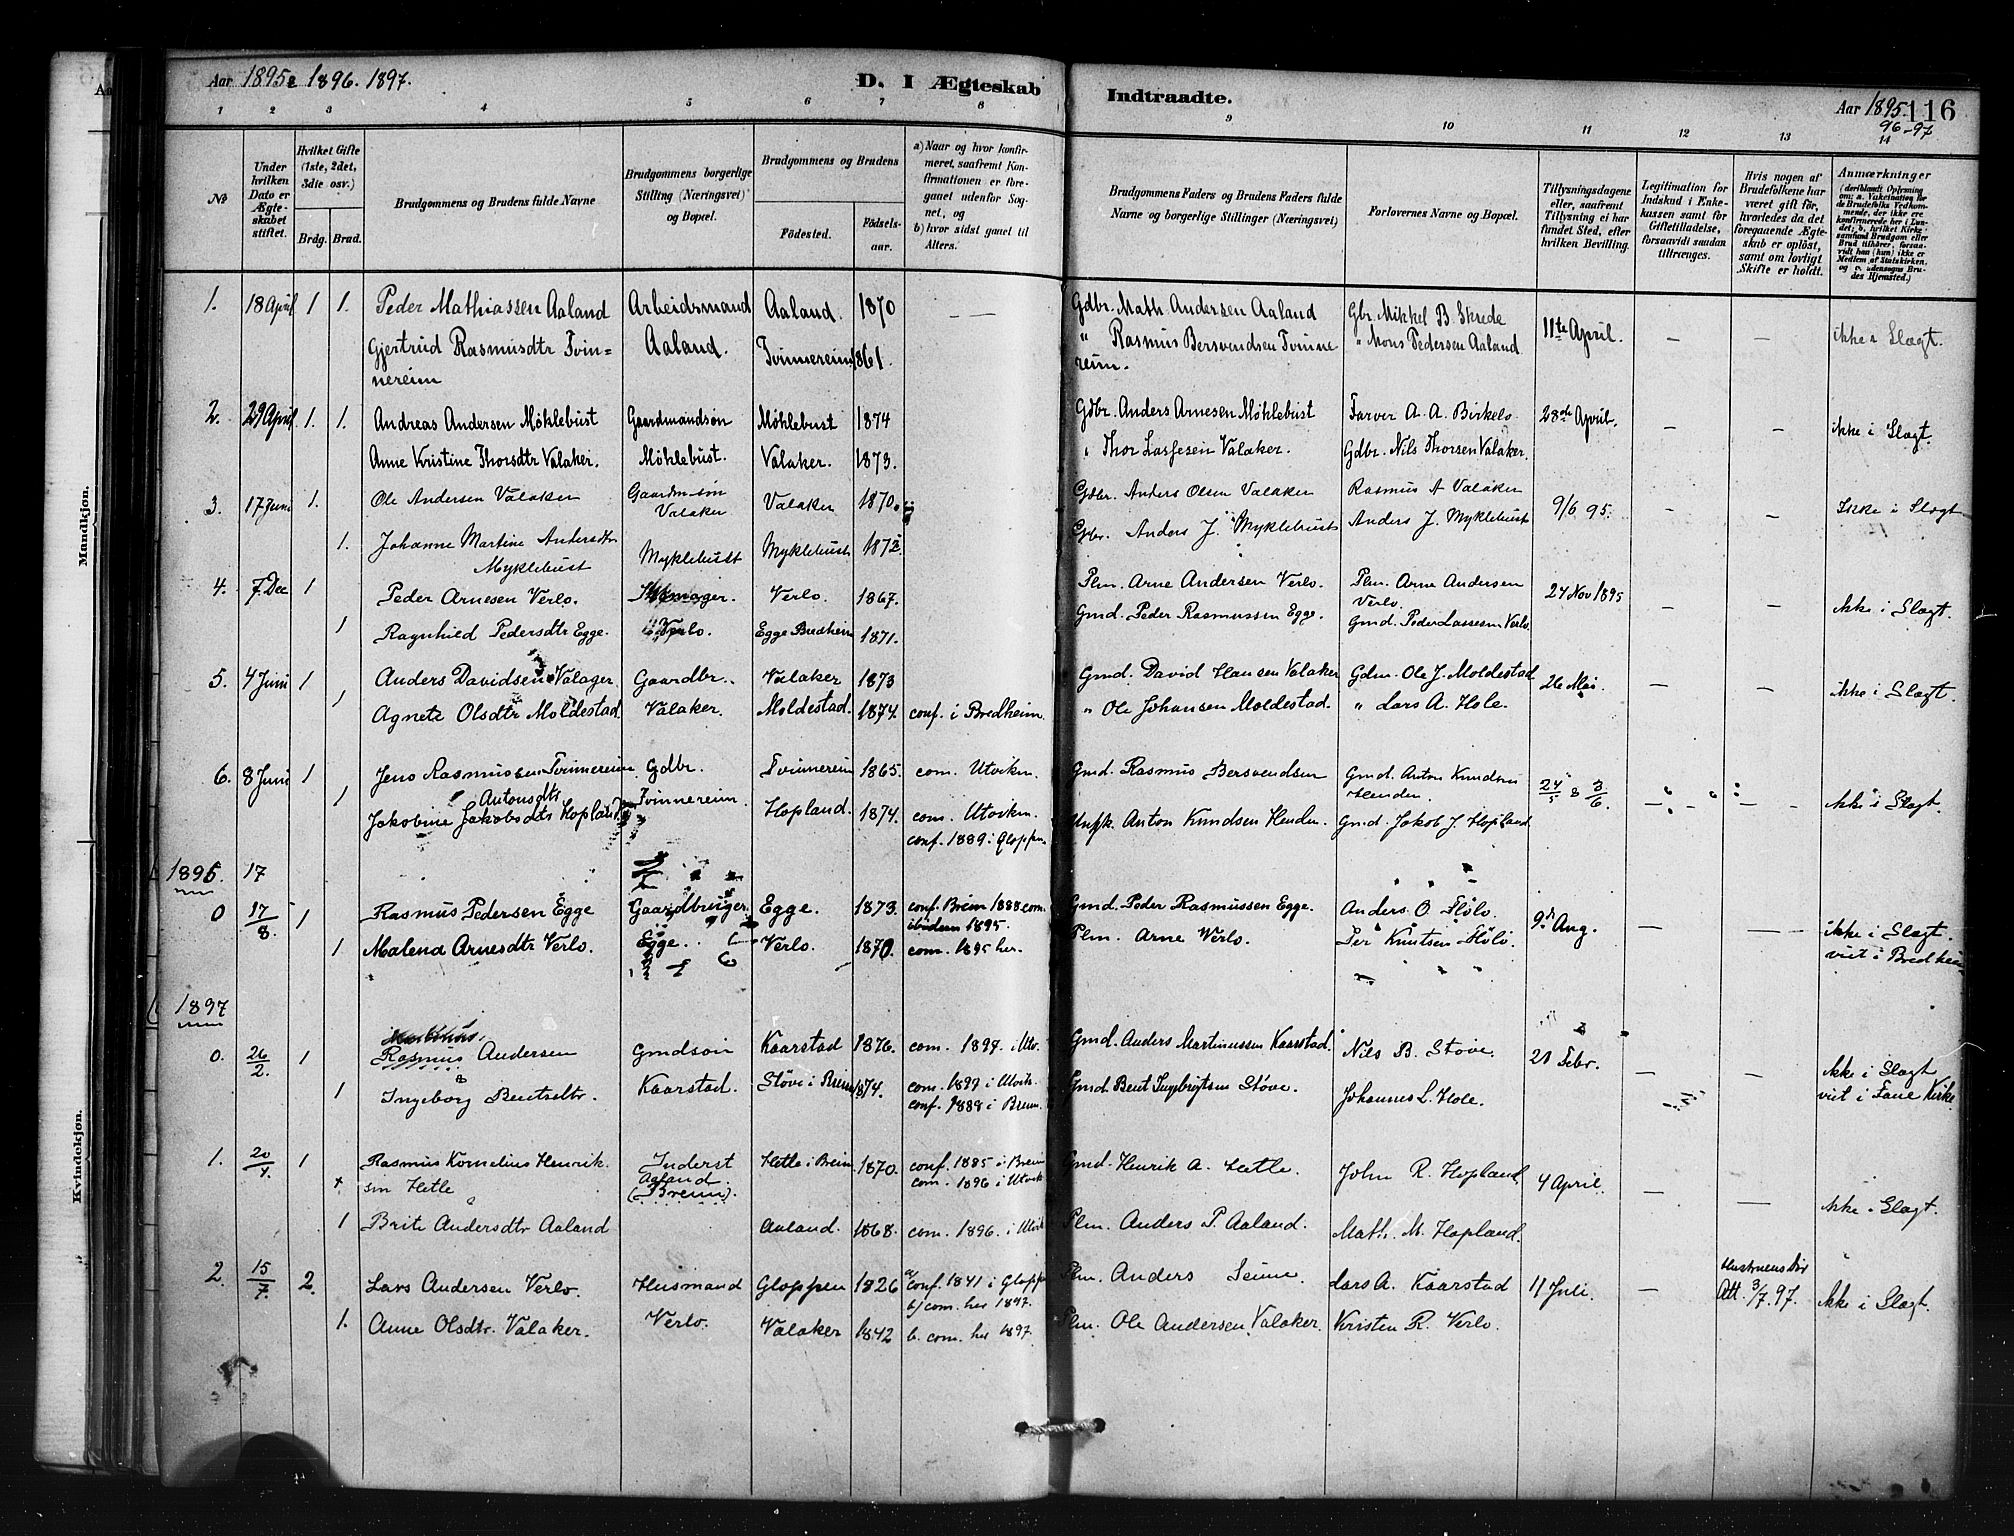 Aar 1895. 1896. 1897.
D. I Ægteskab
Indtraadte.
Aar 1895. 116
96-97
1 2 3 4 5 6 7 8 9 10 11 12 13 14
No
Under hvilken Dato er Ægteskabet stiftet.
Hvilket Gifte (1ste, 2det, 3die osv.)
Brdg. Brud.
Brudgommens og Brudens fulde Navne
Brudgommens borgerlige Stilling (Næringsvei) og Bopæl.
Brudgommens og Brudens
Födested. Födselsaar.
a) Naar og hvor konfirmeret, saafremt Konfirmationen er foregaaet udenfor Sognet, og
b) hvor sidst gaaet til Alters.
Brudgommens Faders og Brudens Faders fulde Navne og borgerlige Stillinger (Næringsvei)
Forlovernes Navne og Bopæl.
Tillysningsdagene eller, saafremt Tillysning ei har fundet Sted, efter hvilken Bevilling.
Legitimation for Indskud i Enkekassen samt for Giftetilladelse, forsaavidt saadan tiltrænges.
Hvis nogen af Brudefolkene har været gift før, hvorledes da det foregaaende Ægteskab er oplöst, samt om lovligt Skifte er holdt.
Anmærkninger
Mandkjøn.
Kvindekjøn.
1. 18 April 1 1. Peder Mathiassen Aaland Arbeidsmand Aaland. 1870 Gdbr. Math. Andersen Aaland Gbr. Mikkel B. Skrede 11te April. — — ikke i Slægt.
Gjertrud Rasmusdtr Tvin= Aaland. Tvinnereim 1861. " Rasmus Bersvendsen Tvinne " Mons Pedersen Aaland
nereim reim.
2. 29 April 1. 1. Andreas Andersen Möhlebust Gaardmandsön Möhlebust 1874 Gdbr. Anders Arnesen Möhlebust Farver A. A. Birkelo 28de April. — — ikke i Slægt.
Anne Kristine Thorsdtr Valaker. Möhlebust. Valaker. 1873. " Thor Lassesen Valaker. Gdbr. Nils Thorsen Valaker.
3. 17 Juni 1. Ole Andersen Valaker Gaardm.søn Valaker Valaker 1870. Gdbr. Anders Olsen Valaker Rasmus A Valaker 9/6 95. — — Ikke i Slægt
1. Johanne Martine Andersdtr Myklebust Myklebust Myklebust Gbr. Anders J. Myklebust Anders J. Myklebust
4. 7 Dec 1 Peder Arnesen Verlo. Verlo. 1867. Plm. Arne Andersen Verlo. Plm. Arne Andersen Verlo 24 Nov 1895 — — ikke i Slægt.
1 Ragnhild Pedersdtr Egge. Verlo. Egge Bredheim 1871. Gmd. Peder Rasmussen Egge. Gmd. Peder Lassesen Verlo
5. 4 Juni 1 Anders Davidsen Valager Gaardbr. Valaker 1873 Gmd. David Hansen Valaker Gdm. Ole J. Moldestad 26 Mai. — — ikke i Slægt.
1 Agnete Olsdtr Moldestad Valaker. Moldestad. 1874. conf. i Bredheim. " Ole Johansen Moldestad. " Lars A. Hole.
6. 8 Juni 1 Jens Rasmussen Tvinnereim Gdbr. Tvinnereim 1865. com. Utviken. Gmd. Rasmus Bersvendsen Gmd. Anton Knudsen Henden. 24/5 & 3/6. ikke i Slægt.
1 Jakobine Antonsdtr Jakobsdtr Hopland Tvinnereim. Hopland 1874. com. Utviken. Anton Knudsen Henden. Gmd. Jakob J. Hopland
conf. 1889 i Gloppen.
1896. 17
0 17/8. 1 Rasmus Pedersen Egge Gaardbruger Egge. 1873. conf. Breim 1888 com. ibidem 1895. Gmd. Peder Rasmussen Egge. Anders O. Flölo. 9de Aug. — — ikke i Slægt.
1 Malena Arnesdtr Verlo. Egge. Verlo. 1870. com. 1895 her. Plm. Arne Verlo. Per Knutsen Flölo. viet i Bredheim
1897
0. 26/2. 1 Rasmus Andersen Gmdsøn Kaarstad 1876. com. 1897. Utv. Gmd. Anders Martinussen Kaarstad. Nils B. Støve. 21 Febr. ikke i Slægt
1 Ingeborg Bentsdtr. Kaarstad. Støve i Breim 1874. com. 1897 i Utvik. Gmd. Bent Ingebrigtsen Støve. Johannes L. Hole. viet i Fane Kirke
conf. 1888 i Breim.
1. 20/4 1 Rasmus Kornelius Henrik= Inderst Hetle i Breim 1870. conf. 1885 i Breim Gmd. Henrik A. Hetle. John R. Hopland 4 April. — — ikke i Slægt.
sen Hetle Aaland (Breim). com. 1896 i Utvik
1 Brite Andersdtr Aaland Aaland. 1868. com. 1896. i Utvik Plm. Anders P. Aaland. Math. M. Hopland.
2. 15/7. 2. Lars Andersen Verlo. Husmand Gloppen 1826 a/ conf. 1841 i Gloppen Plm. Anders Seime. Lars A. Kaarstad 11 Juli. — Hustruens död Att. 3/7 97. ikke i Slægt.
b) com. her 1897.
1. Anne Olsdtr. Valaker. Verlo. Valaker 1842 b. com. her 1897. Plm. Ole Andersen Valaker. Kristen R. Verlo.